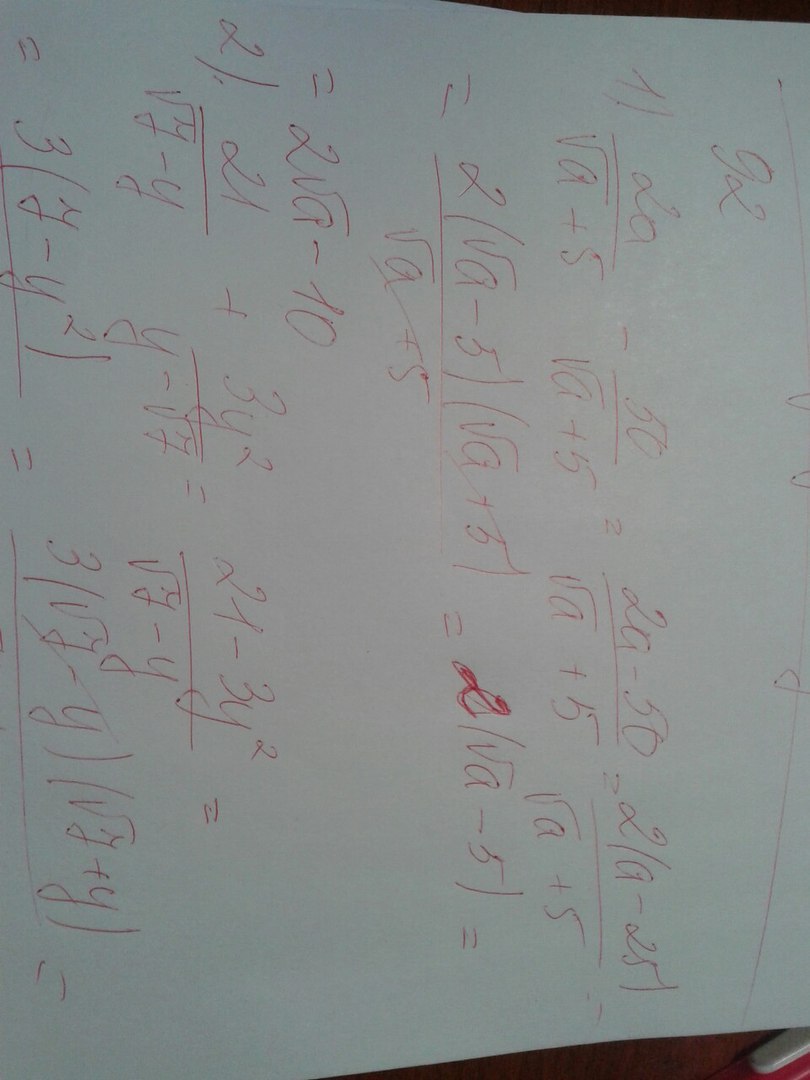 92
1) 2a/(√a+5) - 50/(√a+5) = (2a-50)/(√a+5) = 2(a-25)/(√a+5) =
= 2(√a-5)(√a+5)/(√a+5) = 2(√a-5) =
= 2√a-10
2). 21/(√7-y) + 3y²/(y-√7) = (21-3y²)/(√7-y) =
= 3(7-y²) = 3(√7-y)(√7+y) =